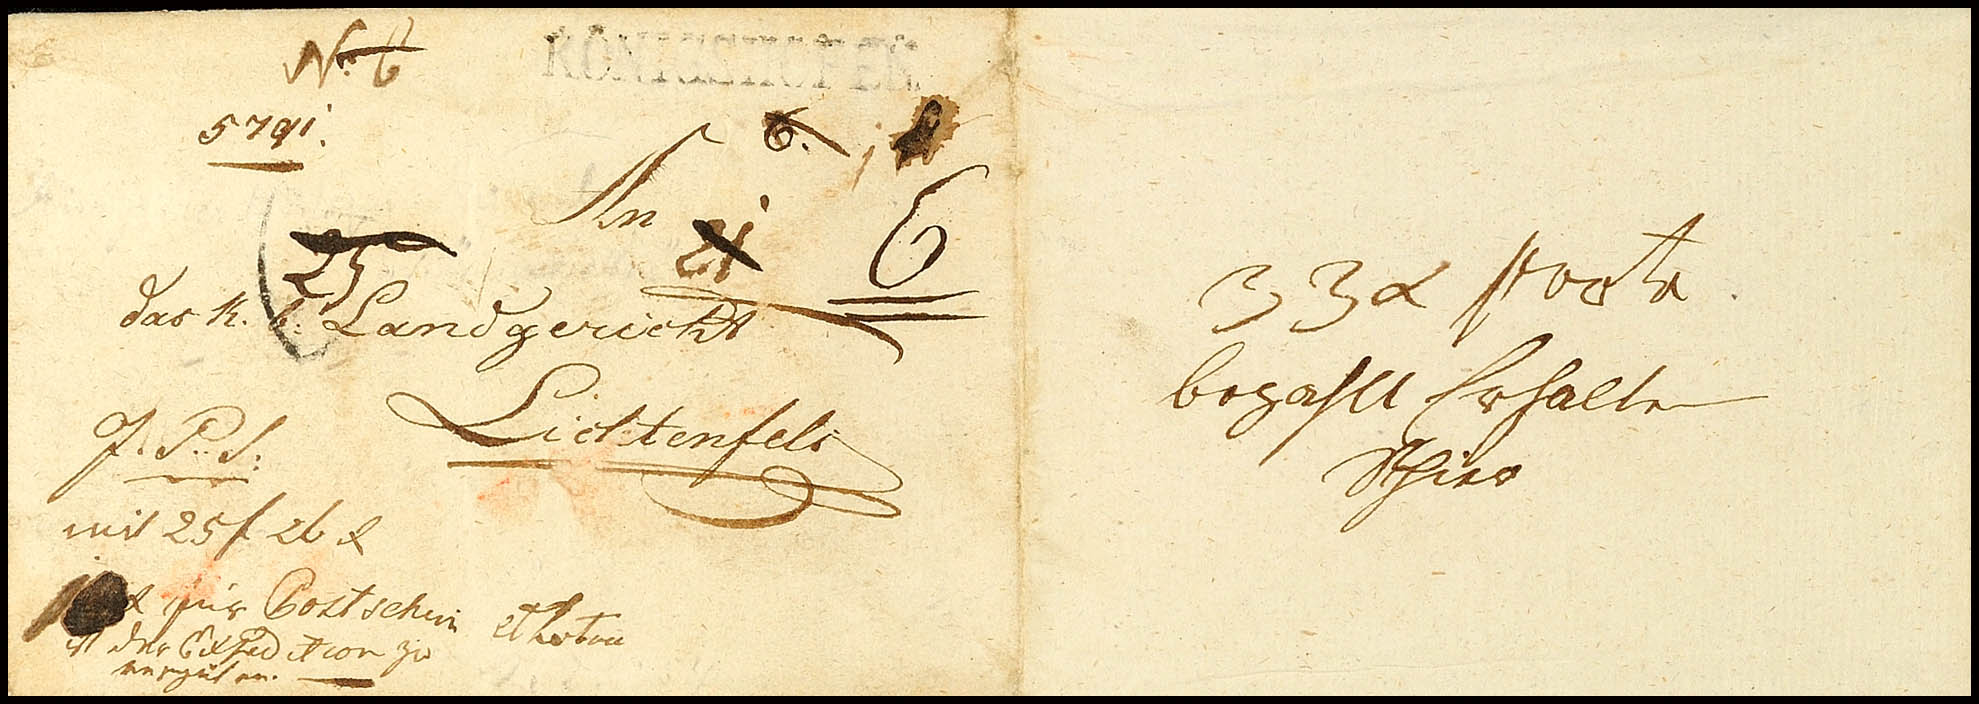 N. 6
5791.
6.
An
21
6
25
das K. b. Landgericht
Lichtenfels
J. P. S.
mit 25 f 26 x
für Postschein
ist der Expedition zu
vergüten.
33 x porto
bezahlt Erhalten